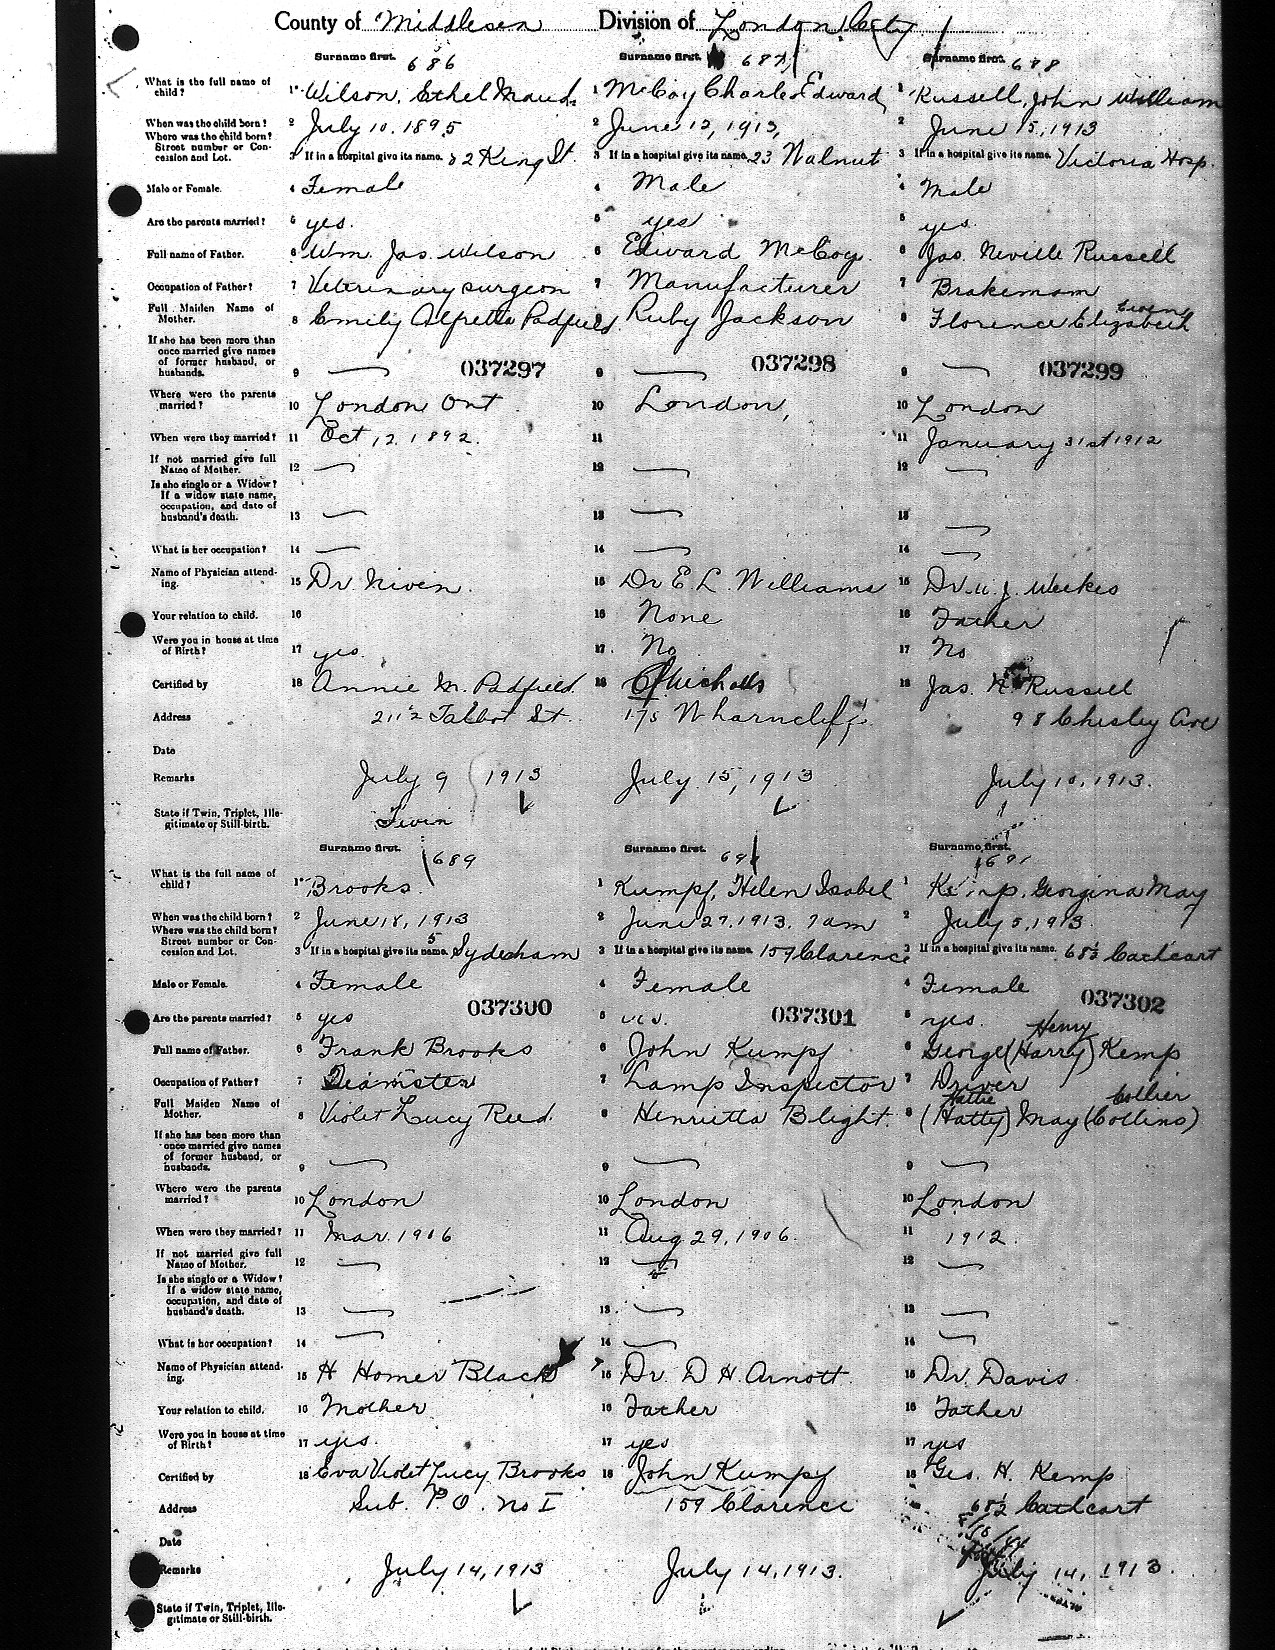 County of Middlesex Division of London City
Surname first. 686 Surname first. 687 Surname first. 688
What is the full name of child? 1 Wilson, Ethel Maud. 1 McCoy Charles Edward 1 Russell, John William
When was the child born? 2 July 10. 1895 2 June 12, 1913, 2 June 15, 1913
Where was the child born? Street number or Concession and Lot. 3 If in a hospital give its name. 82 King St. 3 If in a hospital give its name. 23 Walnut 3 If in a hospital give its name. Victoria Hosp.
Male or Female. 4 Female 4 Male 4 Male
Are the parents married? 5 yes. 5 yes 5 yes.
Full name of Father. 6 Wm. Jas. Wilson 6 Edward McCoy. 6 Jas. Neville Russell
Occupation of Father? 7 Veterinary surgeon 7 Manufacturer 7 Brakeman
Full Maiden Name of Mother. 8 Emily Padfield 8 Ruby Jackson 8 Florence Elizabeth
If she has been more than once married give names of former husband, or husbands. 9 — 037297 9 — 037298 9 — 037299
Where were the parents married? 10 London Ont. 10 London, 10 London
When were they married? 11 Oct 12, 1892. 11 11 January 31st 1912
If not married give full Name of Mother. 12 — 12 — 12 —
Is she single or a Widow? If a widow state name, occupation, and date of husband's death. 13 — 13 — 13 —
What is her occupation? 14 — 14 — 14 —
Name of Physician attending. 15 Dr. Niven. 15 Dr E L. Williams 15 Dr. W. J. Weekes
Your relation to child. 16 16 None 16 Father
Were you in house at time of Birth? 17 yes. 17 No 17 No
Certified by 18 Annie M. Padfield. 18 Nicholls 18 Jas. N. Russell
Address 211½ Talbot St. 175 Wharncliff 98 Chesley Ave
Date
Remarks July 9 1913 July 15, 1913 July 10, 1913.
State if Twin, Triplet, Illegitimate or Still-birth. Twin
Surname first. 689 Surname first. 690 Surname first. 691
What is the full name of child? 1 Brooks. 1 Kumpf, Helen Isabel 1 Kemp, Georgina May
When was the child born? 2 June 18, 1913 2 June 27, 1913. 7am 2 July 5, 1913
Where was the child born? Street number or Concession and Lot. 3 If in a hospital give its name. 5 Sydenham 3 If in a hospital give its name. 159 Clarence 3 If in a hospital give its name. 68½ Cathcart
Male or Female. 4 Female 4 Female 4 Female
037300 037301 037302
Are the parents married? 5 yes 5 yes. 5 yes.
Full name of Father. 6 Frank Brooks 6 John Kumpf 6 George (Harry) Henry Kemp
Occupation of Father? 7 Teamster 7 Lamp Inspector 7 Driver
Full Maiden Name of Mother. 8 Violet Lucy Reed. 8 Henrietta Blight. 8 (Hatty) Hattie May (Collins) Collier
If she has been more than once married give names of former husband, or husbands. 9 — 9 — 9 —
Where were the parents married? 10 London 10 London 10 London
When were they married? 11 Mar. 1906 11 Aug 29, 1906. 11 1912.
If not married give full Name of Mother. 12 — 12 — 12 —
Is she single or a Widow? If a widow state name, occupation, and date of husband's death. 13 — 13 — 13 —
What is her occupation? 14 — 14 — 14 —
Name of Physician attending. 15 H Homer Black 15 Dr. D H. Arnott. 15 Dr. Davis
Your relation to child. 16 Mother 16 Father 16 Father
Were you in house at time of Birth? 17 yes. 17 yes 17 yes
Certified by 18 Eva Violet Lucy Brooks 18 John Kumpf 18 Geo. H. Kemp
Address Sub. P O. No I 159 Clarence 68½ Cathcart
Date
Remarks July 14, 1913 July 14, 1913. July 14, 1913.
State if Twin, Triplet, Illegitimate or Still-birth.